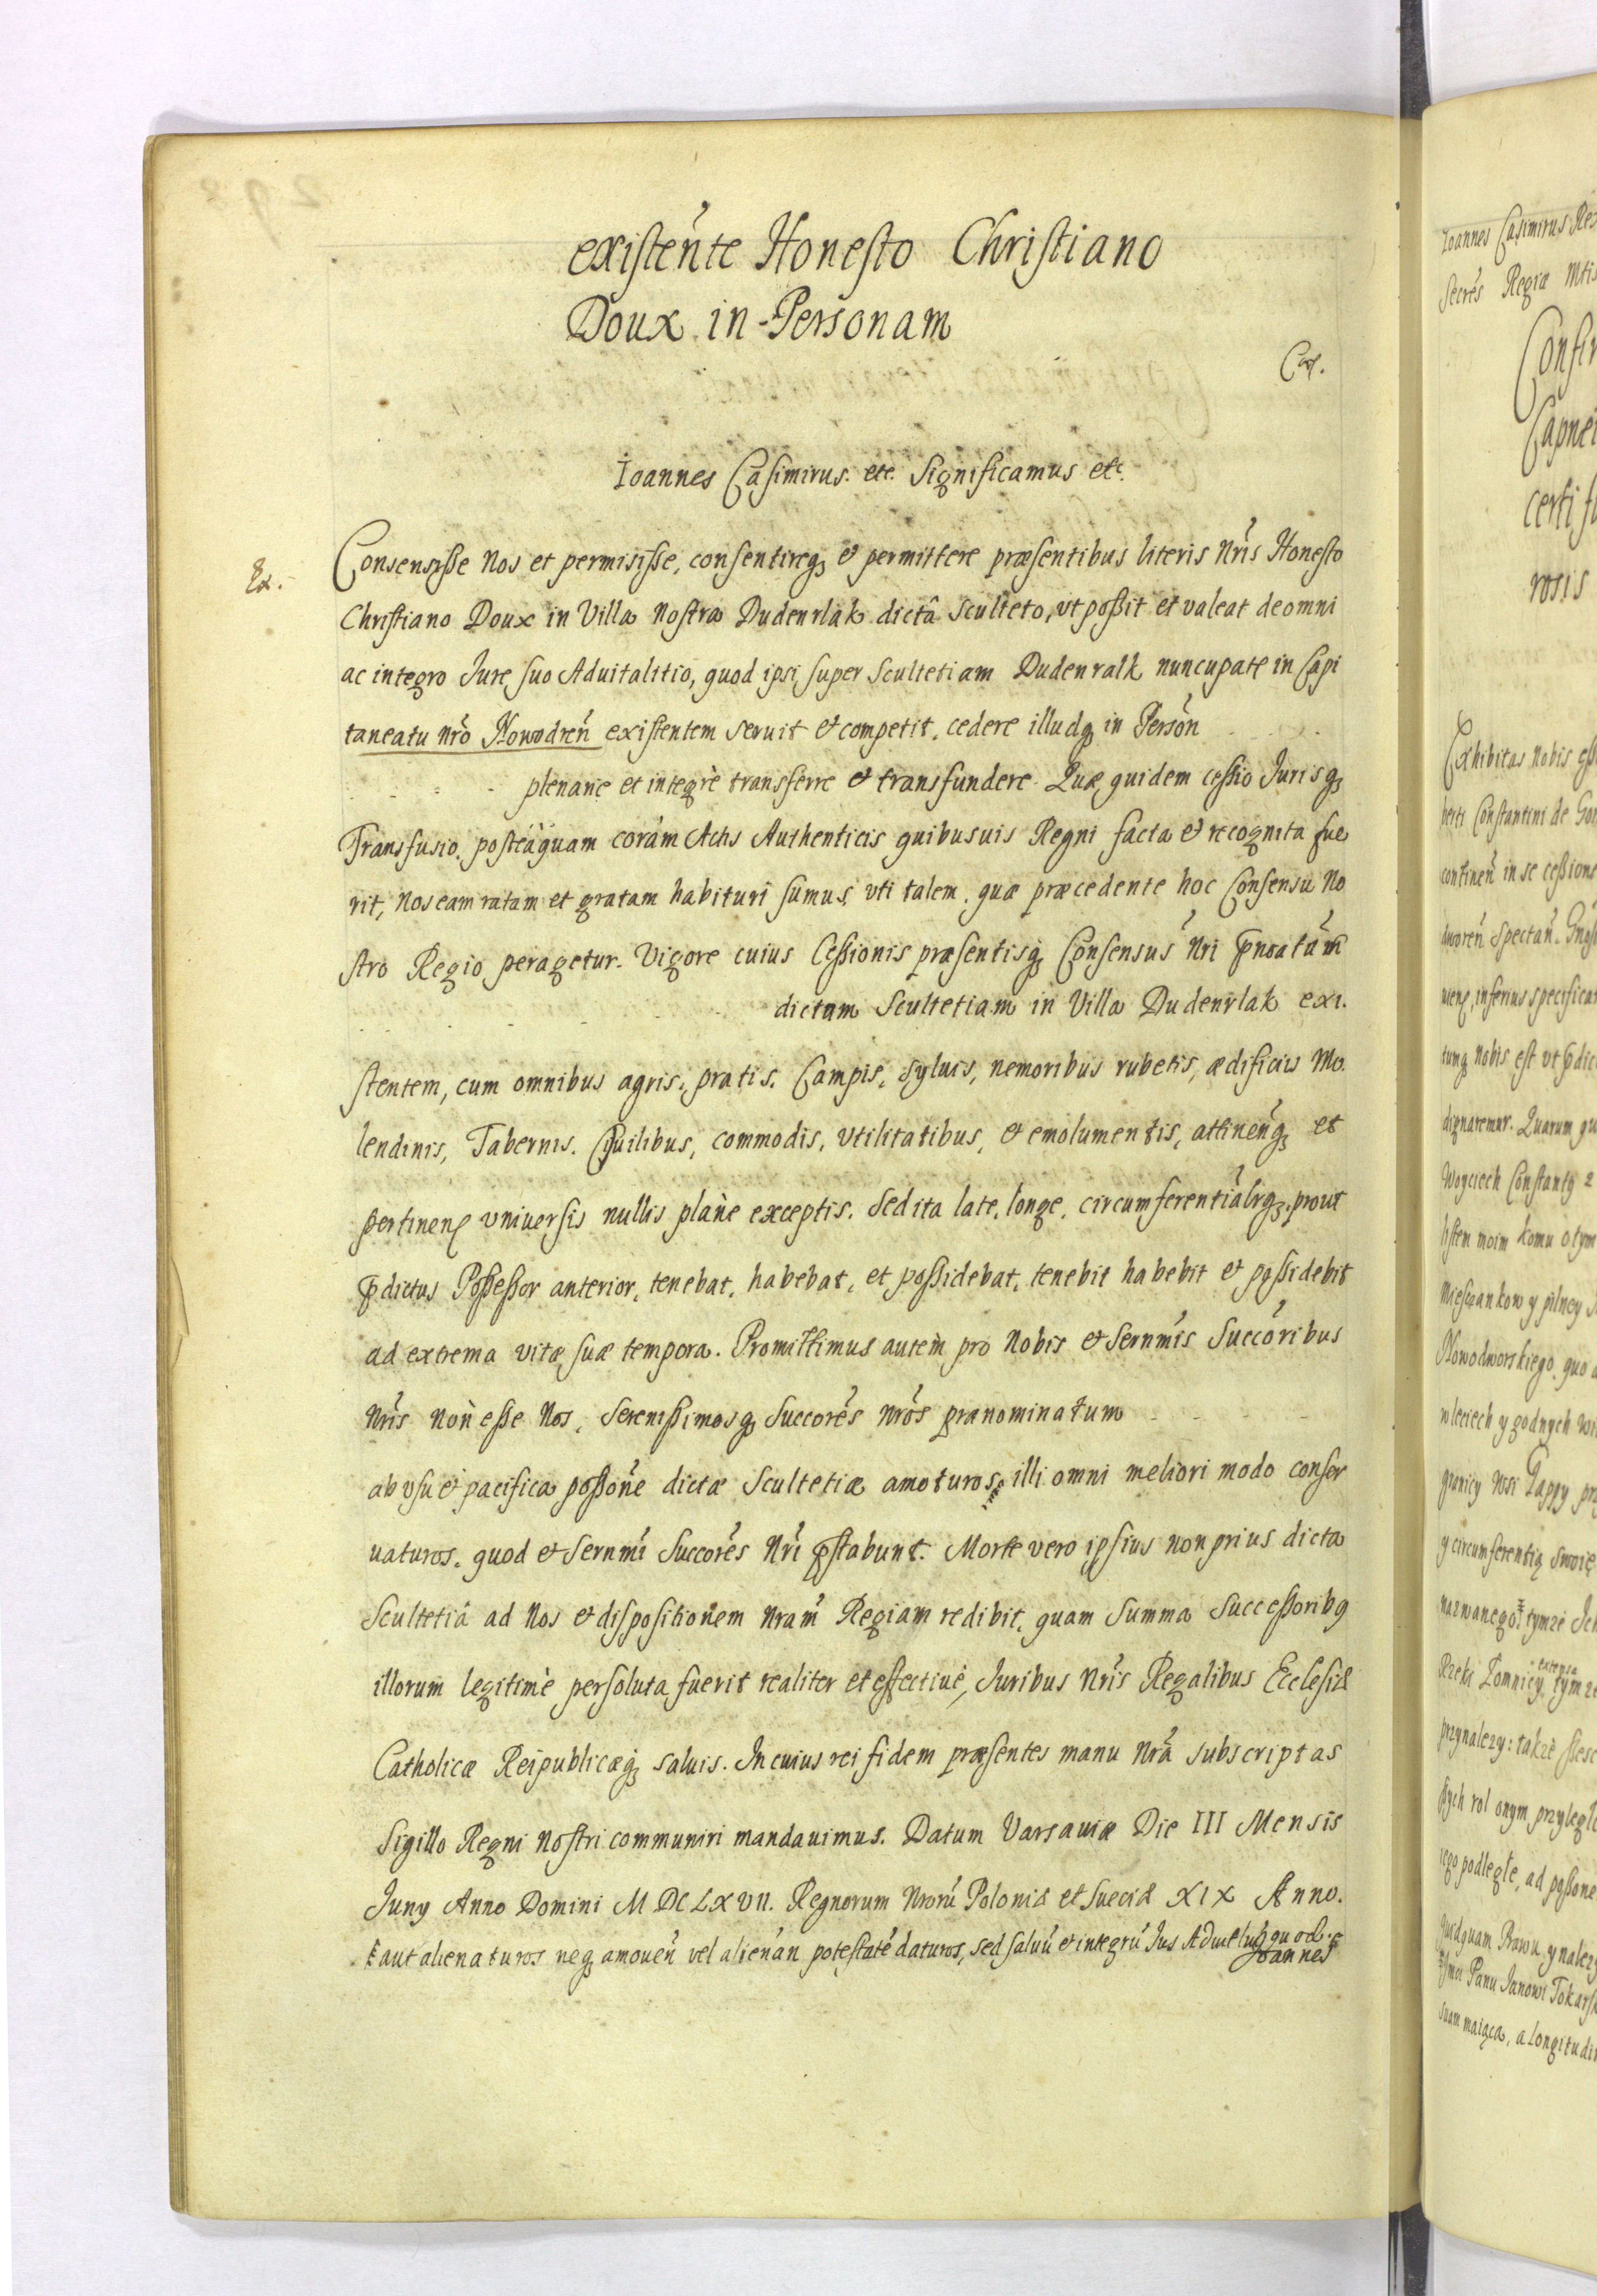 existen̄te Honesto Christiano
Doux in Personam
Ioannes Casimirus. etc. Significamus etc.
Ex.
Consensisse Nos et permisisse, consentireq; et permittere præsentibus literis Nr̄is Honesto
Christiano Doux in Villa Nostra Dudenrlak dictâ Sculteto, vt possit et valeat de omni
ac integro Jure suo Aduitalitio, quod ipsi super Scultetiam Dudenralk nuncupate in Capi
taneatu Nr̄o Nowodren̄ existentem seruit et competit, cedere illudq; in Person̄
plenarie et integrè transferre et transfundere. Quæ quidem cessio Jurisq;
Transfusio, posteàquam coràm Actis Authenticis quibusuis Regni facta et recognita fue
rit, Nos eam ratam et gratam habituri sumus, vti talem, quæ præcedente hoc Consensu No
stro Regio peragetur. Vigore cuius Cessionis præsentisq; Consensus Nr̄i p̄noatūm
dictam Scultetiam in Villa Dudenrlak exi.
stentem, cum omnibus agris, pratis, Campis, syluis, nemoribus rubetis, ædificiis Mo
lendinis, Tabernis, Ciuilibus, commodis, vtilitatibus, et emolumentis, attinen̄q; et
pertinen; vniuersis nullis planè exceptis. Sed ita late, longe, circumferentialrq;, prout
p̄dictus Possessor anterior, tenebat, habebat, et possidebat, tenebit habebit et possidebit
ad extrema vitæ suæ tempora. Promittimus autem pro Nobis et Sernm̄is Succōribus
Nr̄is non esse Nos, Serenissimosq; Succorēs Nrōs prænominatum
ab vsu et pacifica possōne dictæ Scultetiæ amoturos, illi omni meliori modo conser
uaturos, quod et Sernmī Succorēs Nrī p̄stabunt. Morte vero ipsius non prius dicta
Scultetiâ ad Nos et dispositionem Nram̄ Regiam redibit, quam Summa Successoribq
illorum legitimè persoluta fuerit realiter et effectiuè, Juribus Nrīs Regalibus Ecclesiæ
Catholicæ Reipublicæq; saluis. In cuius rei fidem præsentes manu Nrā subscriptas
Sigillo Regni Nostri communiri mandauimus. Datum Varsauiæ Die III Mensis
Juny Anno Domini M DC LX VII. Regnorum Nrorū Poloniæ et Sueciæ XIX Anno.
aut alienaturos neq; amouen̄ vel alienān potestatē daturos, sed saluū et integrū Jus Aduit
Joannes
Ioannes Casimirus Rex
Secrēs Regiæ Mtis
certi
rosis
Exhibitas Nobis
Constantini de
continen̄ in se cessione
inferius specifica
Nobis est vt p̄dic
dignaremur. Quarum
Woyciech Constanty
moim komu o tym
y pilney
Nowodworskiego, quo
y godnych
y circumferentią swoię
tymze
Łomnicy tymze
extensa
przynalezy: także
rol onym przyległ
podległe, ad possone
Panu Janowi Tokarsk
maiąca, a longitudi